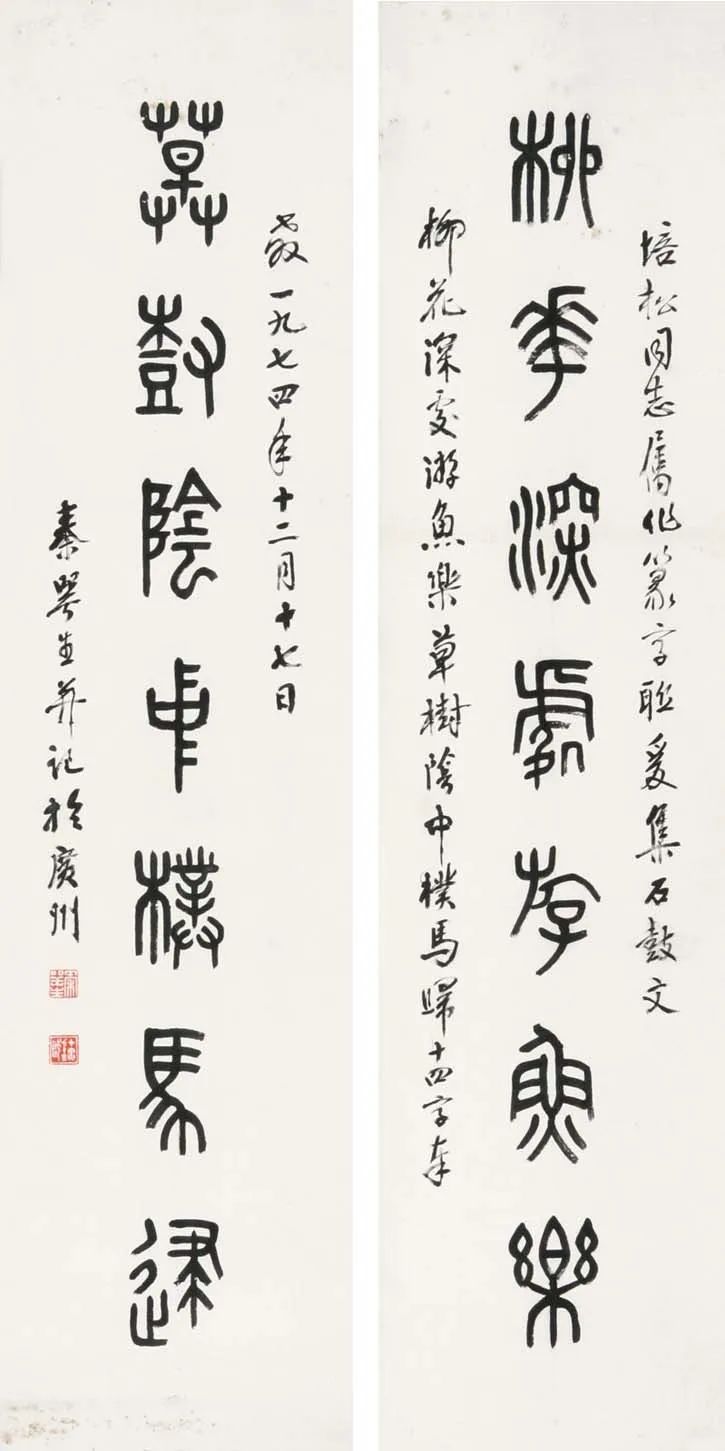 培松同志屬作篆字聯爰集石鼓文
柳華深處斿魚樂
柳花深處游魚樂草樹陰中樸馬歸十四字奉
教一九七四年十二月十七日
草樹陰中樸馬歸
秦咢生并記於廣州